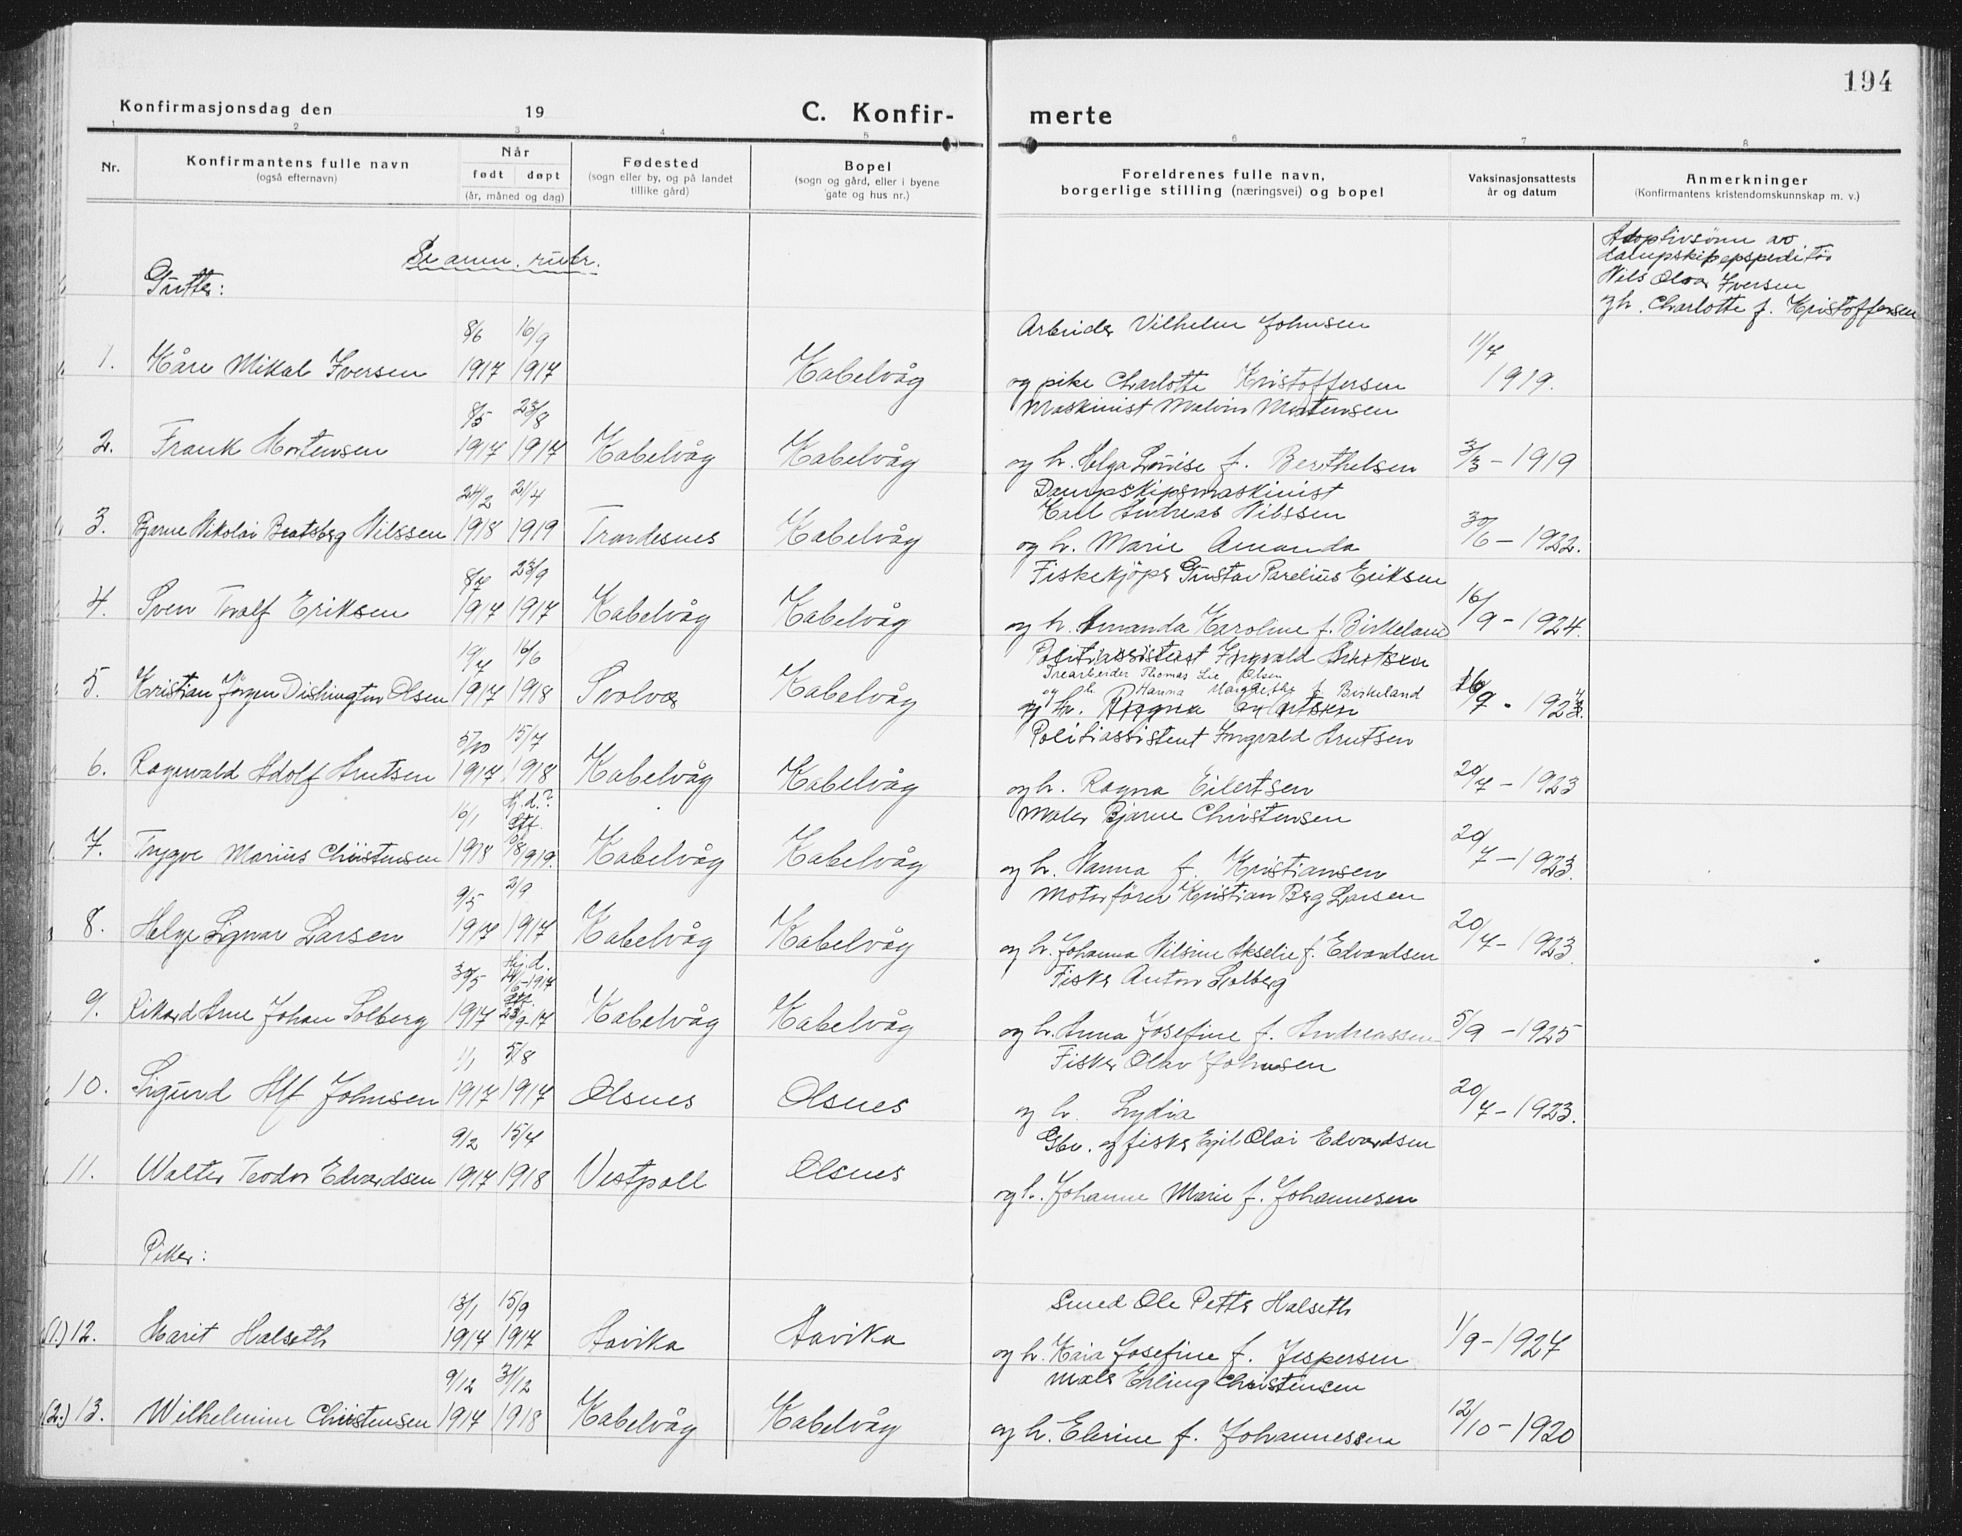 194
Konfirmasjonsdag den 19 C. Konfir- merte
1 2 3 4 5 6 7 8
Nr. Konfirmantens fulle navn (også efternavn) Når født døpt (år, måned og dag) Fødested (sogn eller by, og på landet tillike gård) Bopel (sogn og gård, eller i byene gate og hus nr.) Foreldrenes fulle navn, borgerlige stilling (næringsvei) og bopel Vaksinasjonsattests år og datum Anmerkninger (Konfirmantens kristendomskunnskap m. v.)
Se anm. rubr.
Gutter:
Adoptivsønn av
dampskipsekspeditør
Nils Olav Iversen
og h. Charlotte f. Kristoffersen
Arbeider Vilhelm Johnsen
1. Kåre Mikal Iversen 8/6 1917 16/9 1917 Kabelvåg og pike Charlotte Kristoffersen 11/4 1919.
Maskinist Malvin Mortensen
2. Frank Mortensen 8/5 1917 23/8 1917 Kabelvåg Kabelvåg og h. Helga Lovise f. Berthelsen 3/3 - 1919
Dampskipsmaskinist
Karl Andreas Nilssen
3. Bjarne Nikolai Bratsberg Nilssen 24/2 1918 21/4 1919 Trondenes Kabelvåg og h. Marie Amanda 30/6 - 1922.
Fiskekjöper Gustav Parelius Eriksen
4. Sven Tralf Eriksen 8/7 1917 23/9 1917 Kabelvåg Kabelvåg og h. Amanda Karoline f. Birkeland 16/9 - 1924.
Politiassistent Ingvald Knutsen
Trearbeider Thomas Lie Olsen
og h. Hanna Margrethe f. Birkeland
5. Kristian Jörgen Dishington Olsen 19/7 1917 16/6 1918 Svolvær Kabelvåg og h. Ragna Eilertsen 16/9 - 1924.
Politiassistent Ingvald Knutsen
6. Ragnvald Adolf Knutsen 5/10 1917 15/7 1918 Kabelvåg Kabelvåg og h. Ragna Eilertsen 20/7 - 1923
Maler Bjarne Christensen
7. Trygve Marius Christensen 16/1 1918 Hj. d.? Stf. 10/8 1919. Kabelvåg Kabelvåg og h. Hanna f. Kristiansen 20/7 - 1923.
Motorfører Kristian Berg Larsen
8. Helge Signar Larsen 9/5 1917 2/9 1917 Kabelvåg Kabelvåg og h. Johanna Nilsine Akselie f. Edvardsen 20/7 - 1923.
Fisker Anton Solberg
9. Rikard Arne Johan Solberg 30/5 1917 Hj. d. 14/6-1917 Stf. 23/9-17 Kabelvåg Kabelvåg og h. Anna Josefine f. Andreassen 5/9 - 1925
Fisker Olav Johnsen
10. Sigurd Alf Johnsen 1/1 1917 5/8 1917 Olsnes Olsnes og h. Lydia 20/7 - 1923.
Gbr. og fisker Egil Olai Edvardsen
11. Walter Teodor Edvardsen 9/2 1917 15/4 1918 Vestpoll Olsnes og h. Johanne Marie f. Johannesen
Piker:
Smed Ole Petter Halseth
(1.) 12. Marit Halseth 13/1 1917 15/9 1917 Storvika Storvika og h. Kaia Josefine f. Jespersen 1/9 - 1927
Maler Erling Christensen
(2.) 13. Wilhelmine Christensen 9/12 1917 31/12 1918 Kabelvåg Kabelvåg og h. Elerine f. Johannessen 12/10 - 1920